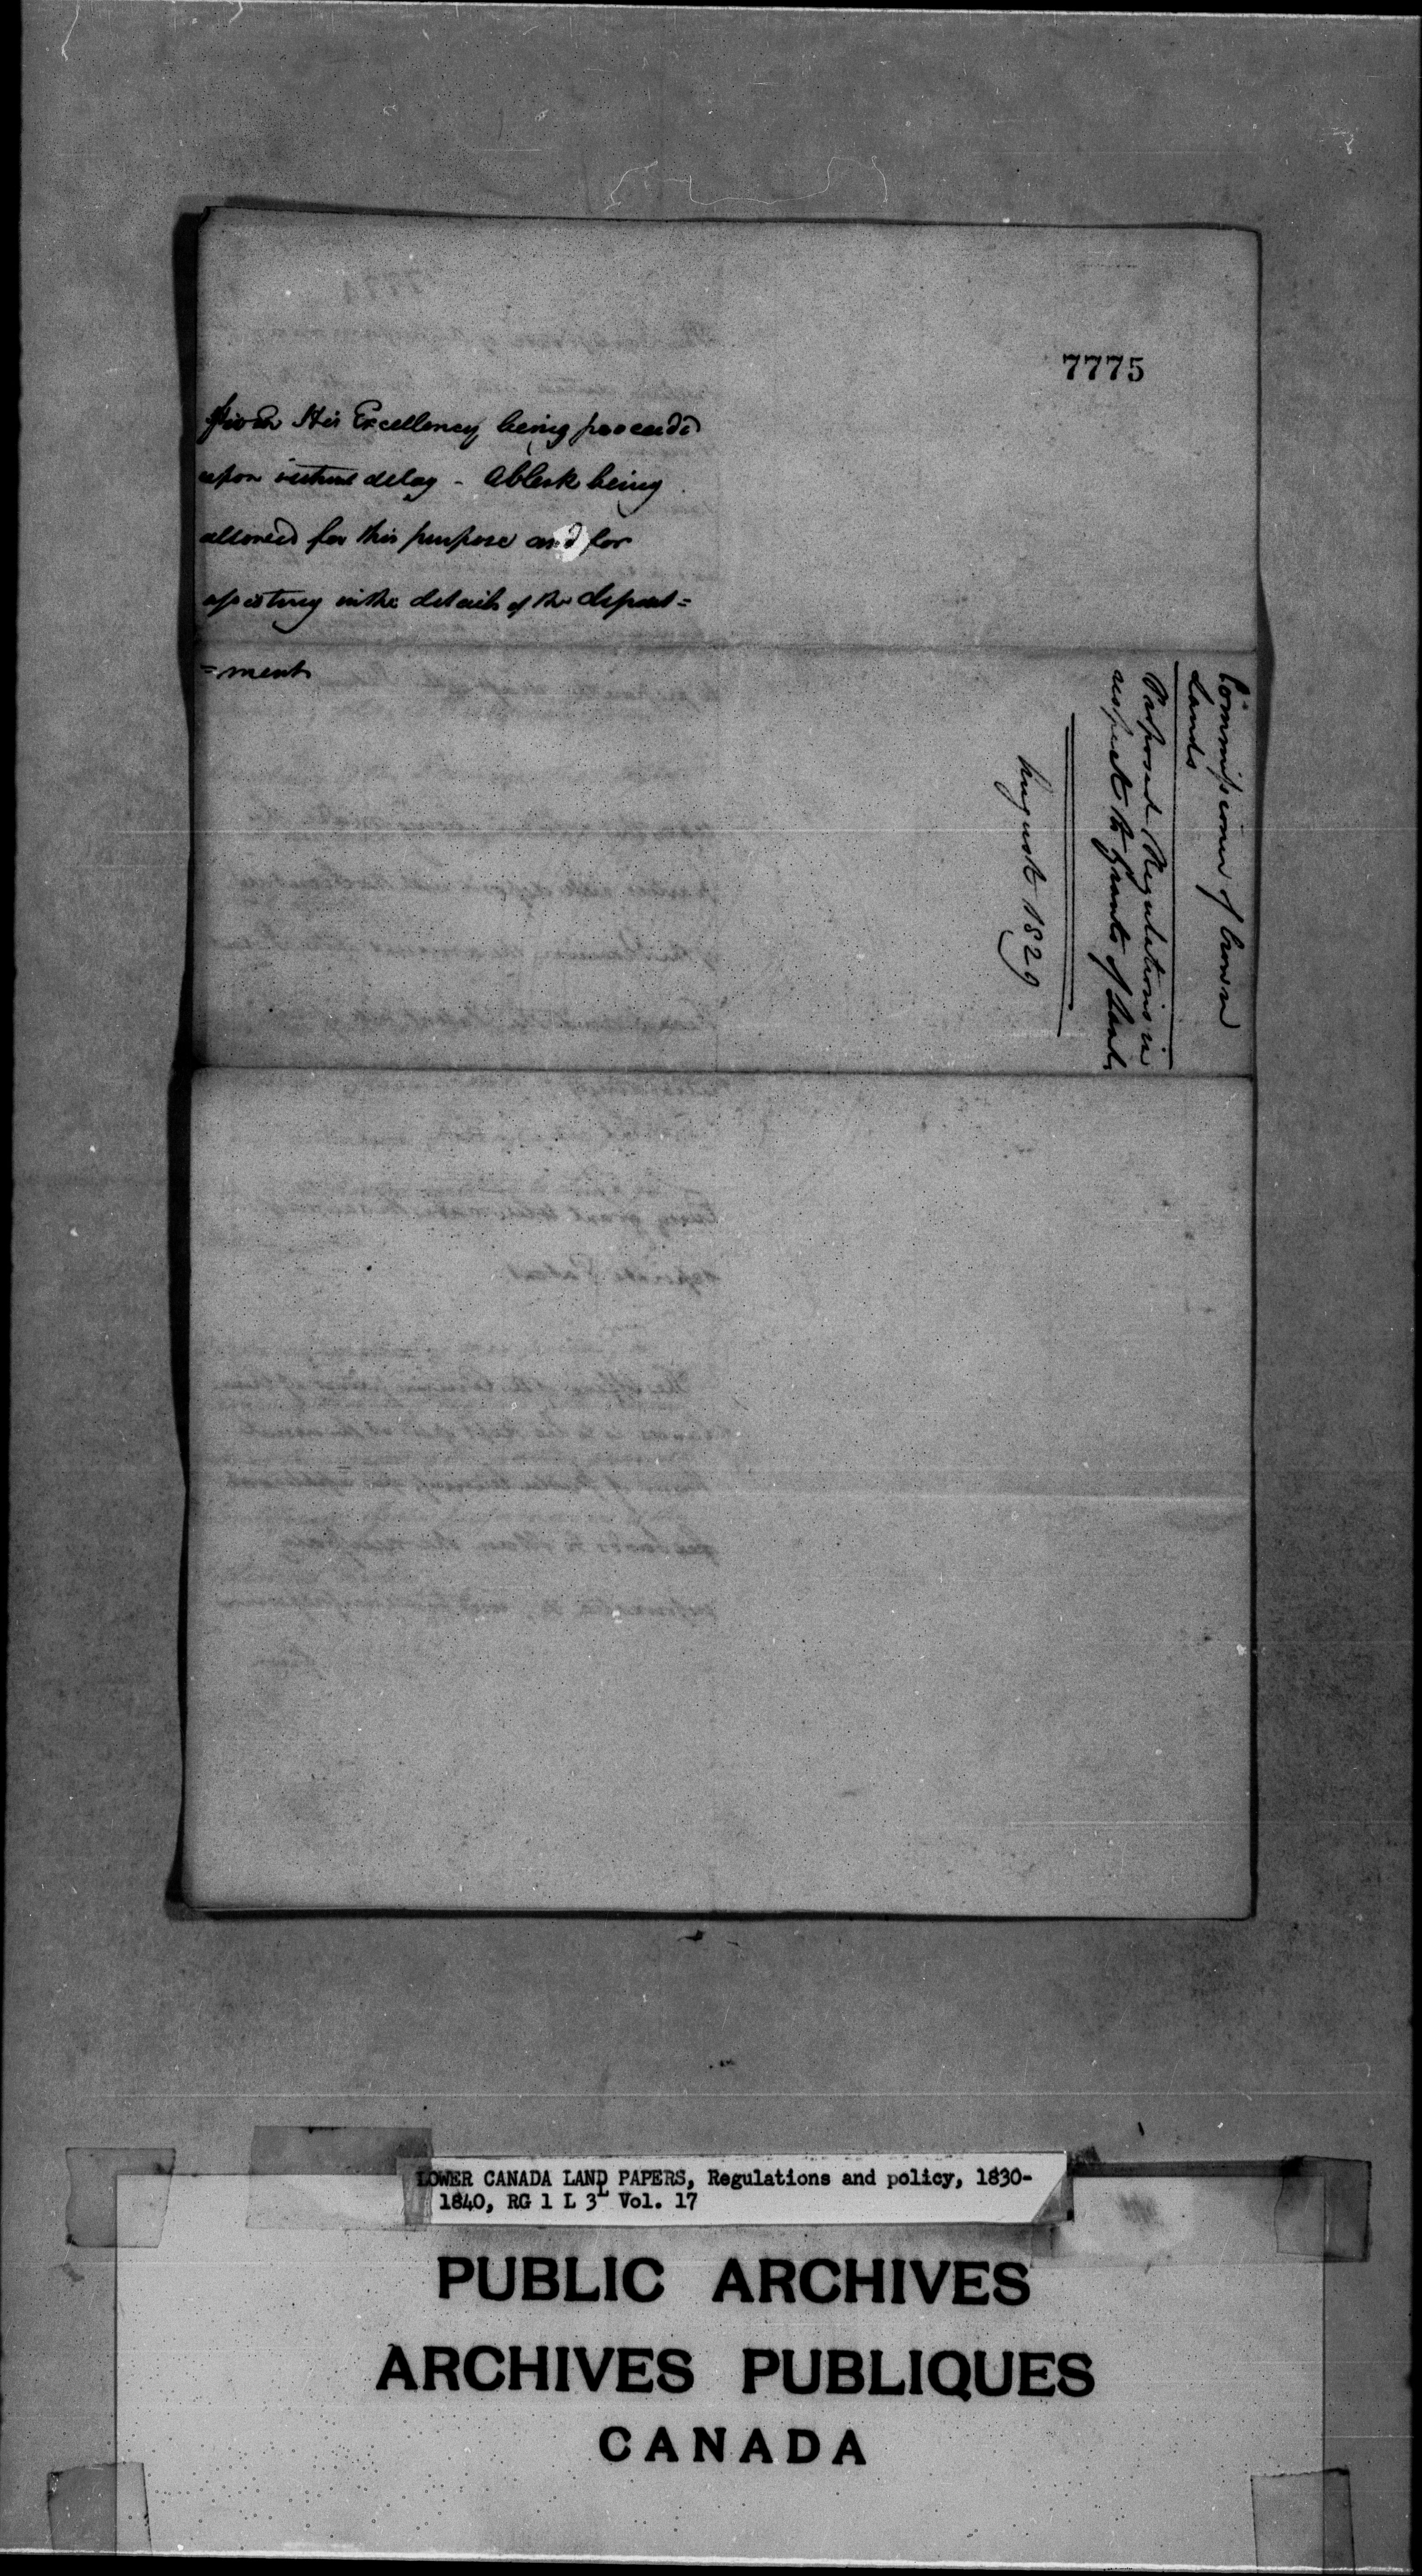 7775
from His Excellency being proceeded
upon without delay - A Clerk being
allowed for this purpose and for
assisting in the details of the depart=
=ment
Commissioner of Crown
Lands
Proposed Regulations in
respect to Grants of Lands
August 1829
LOWER CANADA LAND PAPERS, Regulations and policy, 1830-
1840, RG 1 L 3L Vol. 17
PUBLIC ARCHIVES
ARCHIVES PUBLIQUES
CANADA